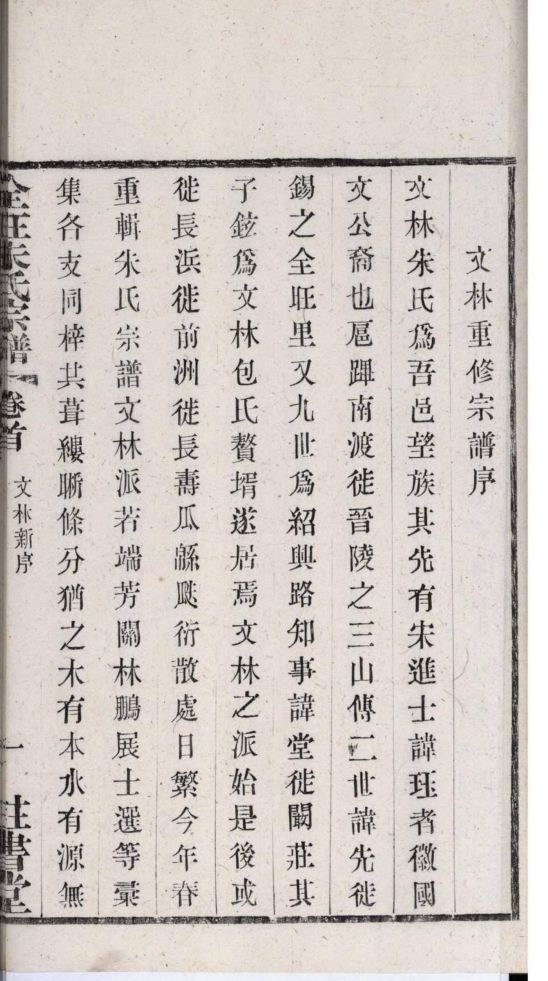 文林重修宗譜序
文林朱氏爲吾邑望族其先有宋進士諱珏者徽國
文公裔也扈蹕南渡徙晉陵之三山傳二世諱先徙
錫之全旺里又九世爲紹興路知事諱堂徙闞莊其
子鉉爲文林包氏贅壻遂居焉文林之派始是後或
徙長浜徙前洲徙長壽瓜緜瓞衍散處日繁今年春
重輯朱氏宗譜文林派若端芳關林鵬展士選等彙
集各支同梓其葺纓晰條分猶之木有本水有源無
全旺朱氏宗譜 卷首 文林新序 一